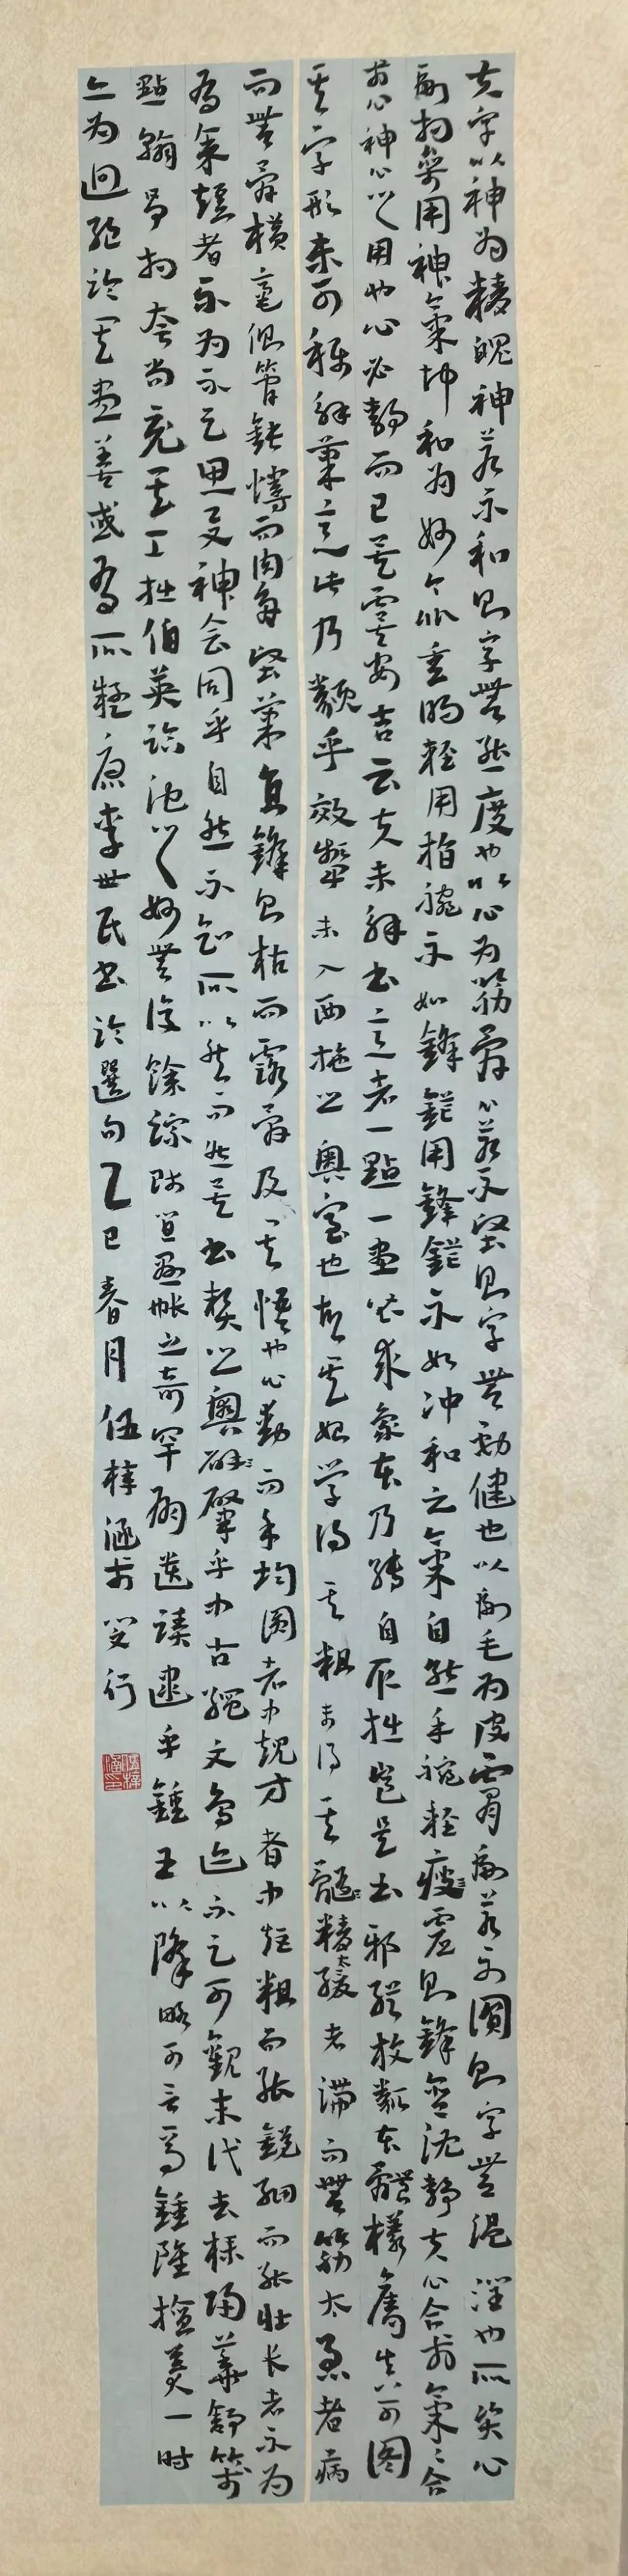 夫字以神为精魄神若不和则字无态度也以心为筋骨心若不坚则字无劲健也以副毛为皮肤副若不圆则字无温润也所资心
副相参用神气冲和为妙今比重明轻用指腕不如锋铓用锋铓不如冲和之气自然手腕轻虚则锋含沈静夫心合于气气合
于心神心之用也心必静而已矣虞安吉云夫未解书意者一点一画皆求象本乃转自取拙岂是书邪纵放类本体样夺真可图
其字形未可称解笔意此乃类乎效颦未入西施之奥室也故其始学得其粗未得其髓精太缓者滞而无筋太急者病
而无骨横毫侧管钝慢而肉多竖笔直锋则枯而露骨及其悟也心动而手均圆者中规方者中矩粗而能锐细而能壮长者不为
有余短者不为不足思与神会同乎自然不知所以然而然矣书契之兴肇乎中古绳文鸟迹不足可观末代去朴归华舒笺
点翰争相夸尚竞其工拙伯英临池之妙无复余踪师宜悬帐之奇罕有遗迹逮乎锺王以降略可言焉锺虽擅美一时
亦为迥绝论其尽善或有所疑 唐李世民书论选句 乙巳春月 伍梓涵于 闵行